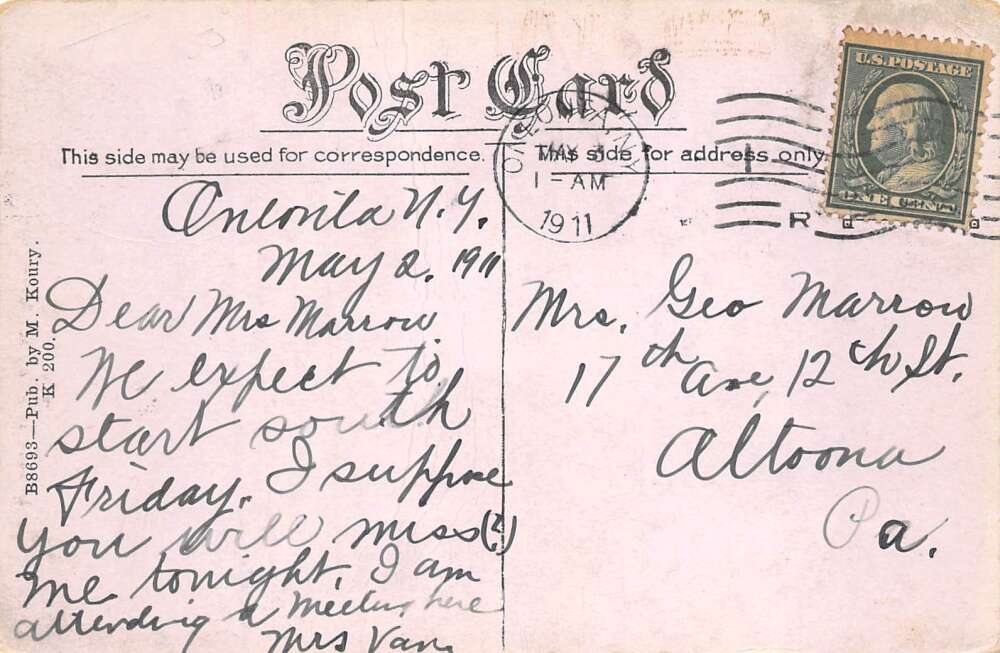 Post Card
This side may be used for correspondence.
This side for address only.
U.S. POSTAGE
ONE CENT
MAY 3
1-AM
1911
B8693—Pub. by M. Koury.
K 200.
N.Y.
May 2. 1911
Dear Mrs Marrow
We expect to
start south
Friday. I suppose
you will miss(?)
me tonight. I am
attending a meeting here
Mrs Van
Mrs. Geo Marrow
17th Ave, 12th St.
Altoona
Pa.